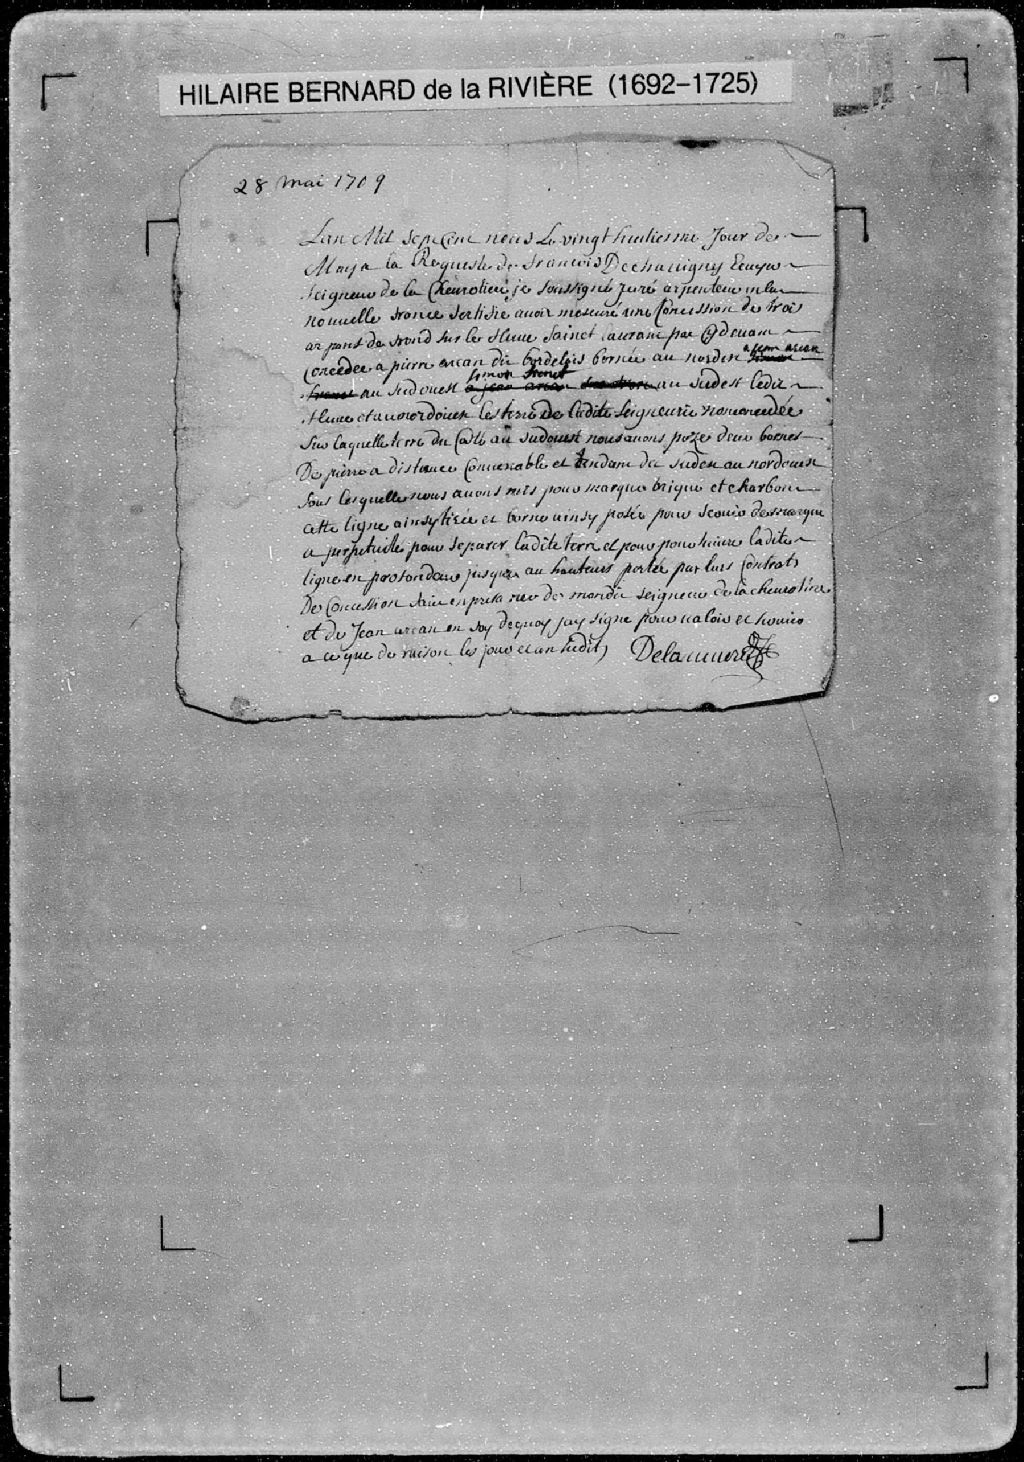 HILAIRE BERNARD de la RIVIÈRE (1692–1725)
28 mai 1709
Lan Mil sepcent neuf Le vingt huitiesme Jour de
May a la Requeste de francois Dechauigny Ecuyer
seigneur de la Cheurotiere je soussigné juré arpenteur en la
nouuelle france sertifie auoir mesuré une Concession de trois
arpans de frond sur le fleuue sainct laurans par Cydeuan
a jean arcan
Concedee a pierre arcan dit bordelais bornée au nordest
simon
au sudouest au sudest ledit
fleuue et au nordouest les terre de ladite seigneurie non concedée
sur laquelle terre du Costé au sudouest nous auons pozé deux bornes
De pierre a distance Conuenable et tendam du sudest au nordouest
sous lesquelle nous auons mis pour marque brique et charbon
cette ligne ainsy tirée et borne ainsy posée pour seruir de marque
a perpetuitte pour separer ladite terre et pour poursuiure ladite
ligne en profondeur jusques au hauteurs portée par leurs Contrats
De Concession faict en presence de mondit seigneur de la cheurotiere
et de Jean arcan en foy dequoy jay signé pour ualoir et seruir
a ce que de raison les jour et an susdits Delariuiere